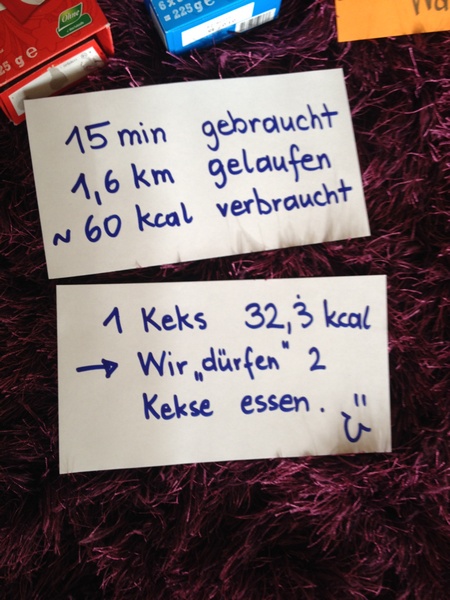 6 x
= 225 g e
25 g e
15 min gebraucht
1,6 km gelaufen
~ 60 kcal verbraucht
1 Keks 32,3 kcal
→ Wir „dürfen" 2
Kekse essen.